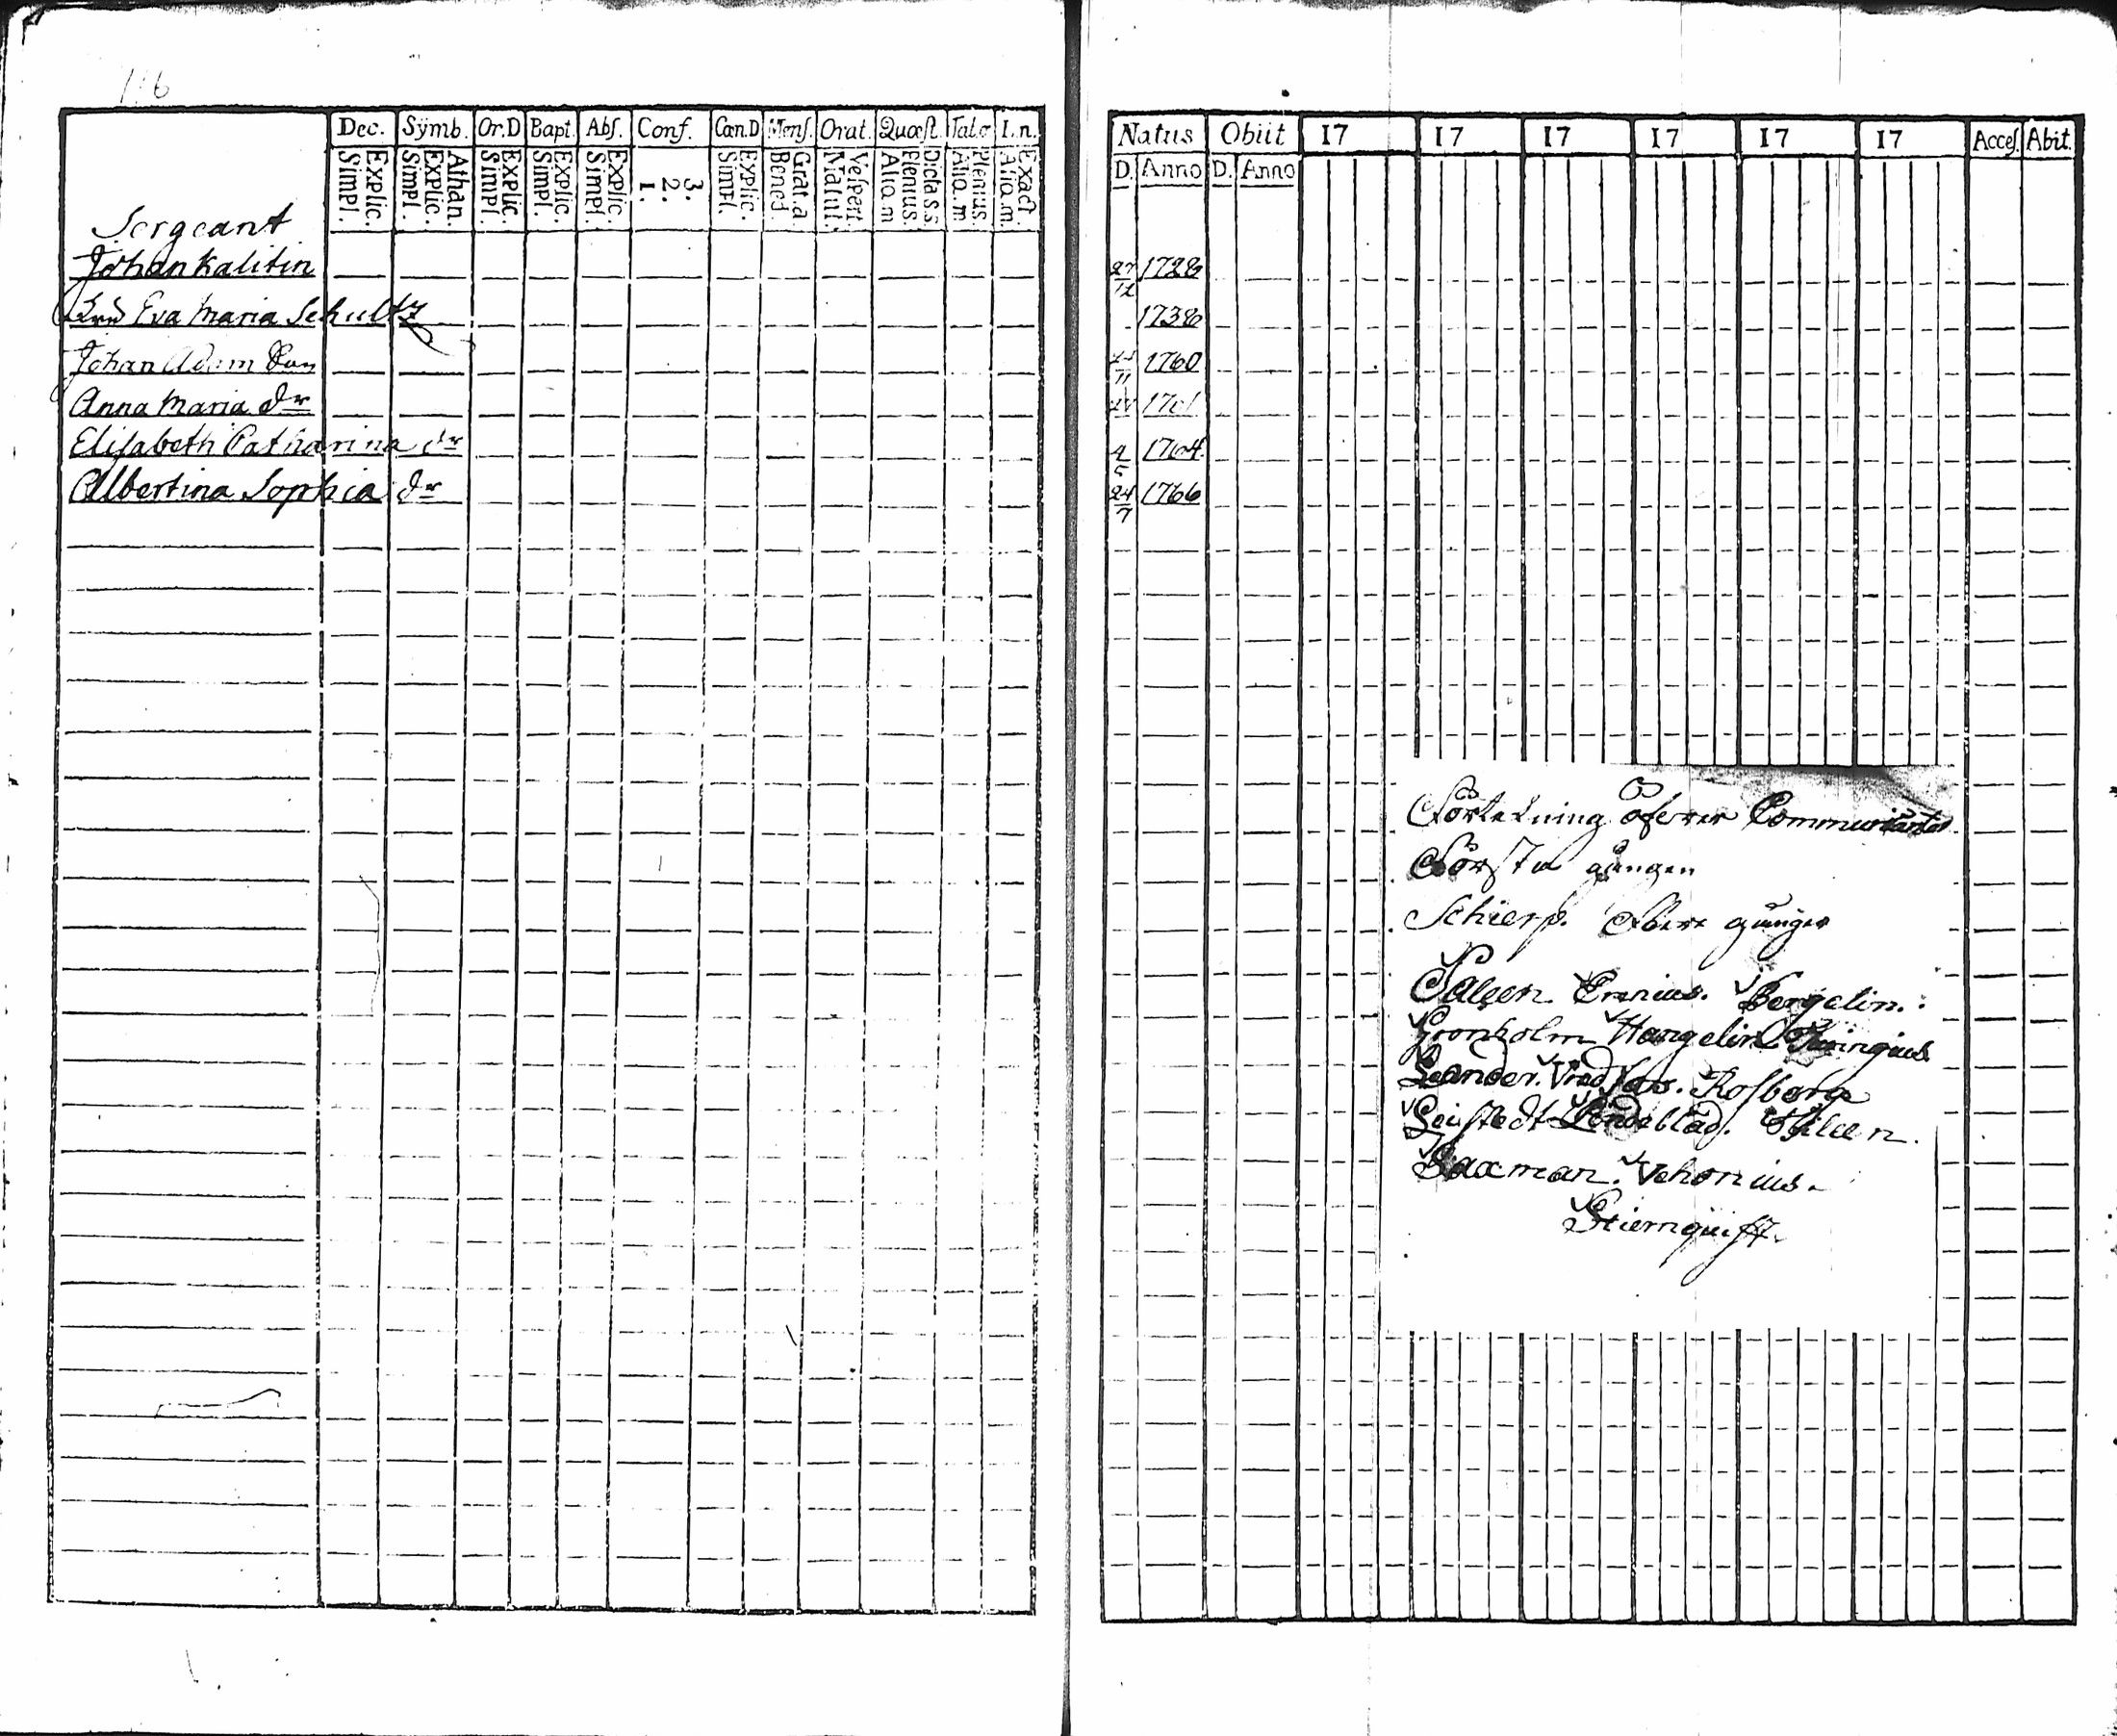 116
Dec. Sÿmb. Or.D Bapt. Abſ. Conf. Cœn.D Menſ. Orat. Quæſt. Tab.œ
Explic. Simpl.
Athan. Explic. Simpl.
Explic. Simpl.
Explic. Simpl.
Explic. Simpl.
3. 2. 1.
Explic. Simpl.
Grat.a Bened.
Veſpert. Matut.
Dicta s.s. Plenius. Aliq.m
Plenius. Aliq.m
Exact. Aliq.m.
Sergeant
Johan Kalitin
Eva Maria Schultz
Johan Adam Son
Anna Maria dr
Elisabeth Catharina dr
Albertina Sophia dr
Natus Obiit 17 17 17 17 17 17 Acceſ. Abit.
D. Anno D. Anno
27/12 1728
1738
11 1760
1761
4/5 1764
24/7 1766
Förtekning öfwer Communicanter
Första gången
Schierp. flere gånger
Saleen Erenius. Bergelin.
Gronholm Hangelin Thuringius
Leander. Rosborg
Leistedt Lindeblad.
Saxman. Vehonius.
Stiernquist.